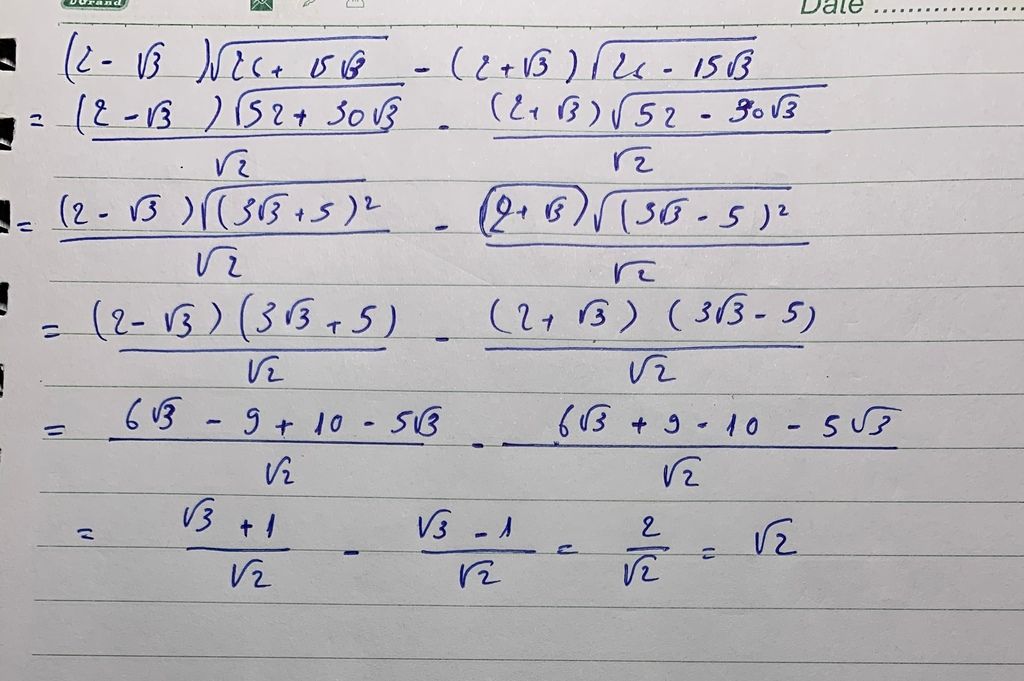 Date ..................
(2 - √3)√(26 + 15√3) - (2 + √3)√(26 - 15√3)
= (2 - √3)√(52 + 30√3) / √2 - (2 + √3)√(52 - 30√3) / √2
= (2 - √3)√((3√3 + 5)²) / √2 - (2 + √3)√((3√3 - 5)²) / √2
= (2 - √3)(3√3 + 5) / √2 - (2 + √3)(3√3 - 5) / √2
= (6√3 - 9 + 10 - 5√3) / √2 - (6√3 + 9 - 10 - 5√3) / √2
= (√3 + 1) / √2 - (√3 - 1) / √2 = 2 / √2 = √2